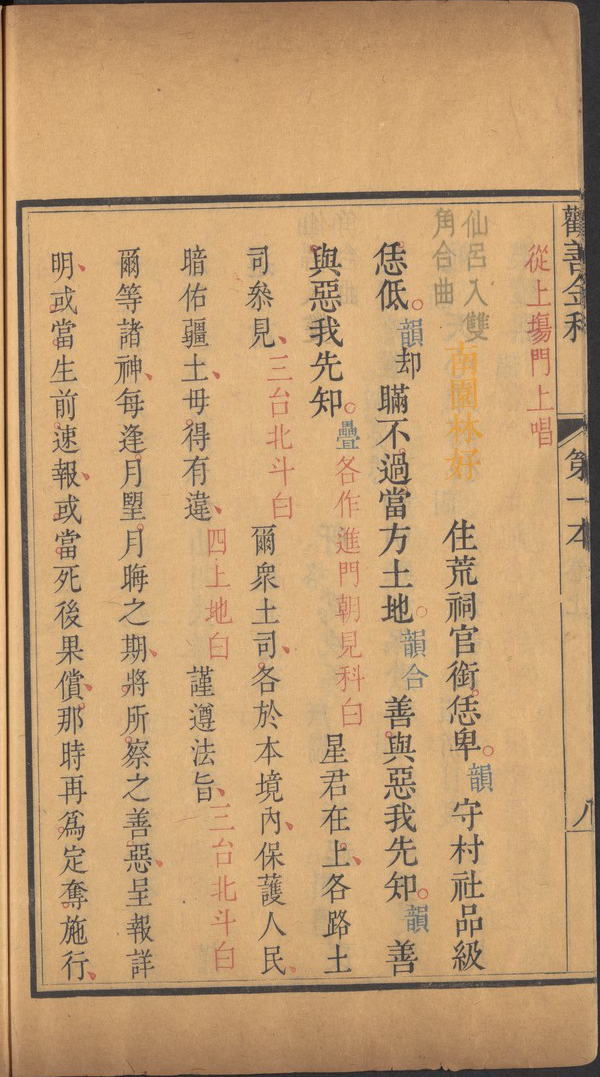 勸善金科
第一本
八
從上塲門上唱
仙呂入雙
角合曲
南園林好
住荒祠官銜恁卑韻守村社品級
恁低韻却瞞不過當方土地韻合善與惡我先知韻善
與惡我先知疊各作進門朝見科白星君在上各路土
司叅見三台北斗白爾衆土司各於本境內保護人民
暗佑疆土毋得有違四上地白謹遵法旨三台北斗白
爾等諸神每逢月朢月晦之期將所察之善惡呈報詳
明或當生前速報或當死後果償那時再爲定奪施行